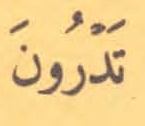 تَذَرُونَ